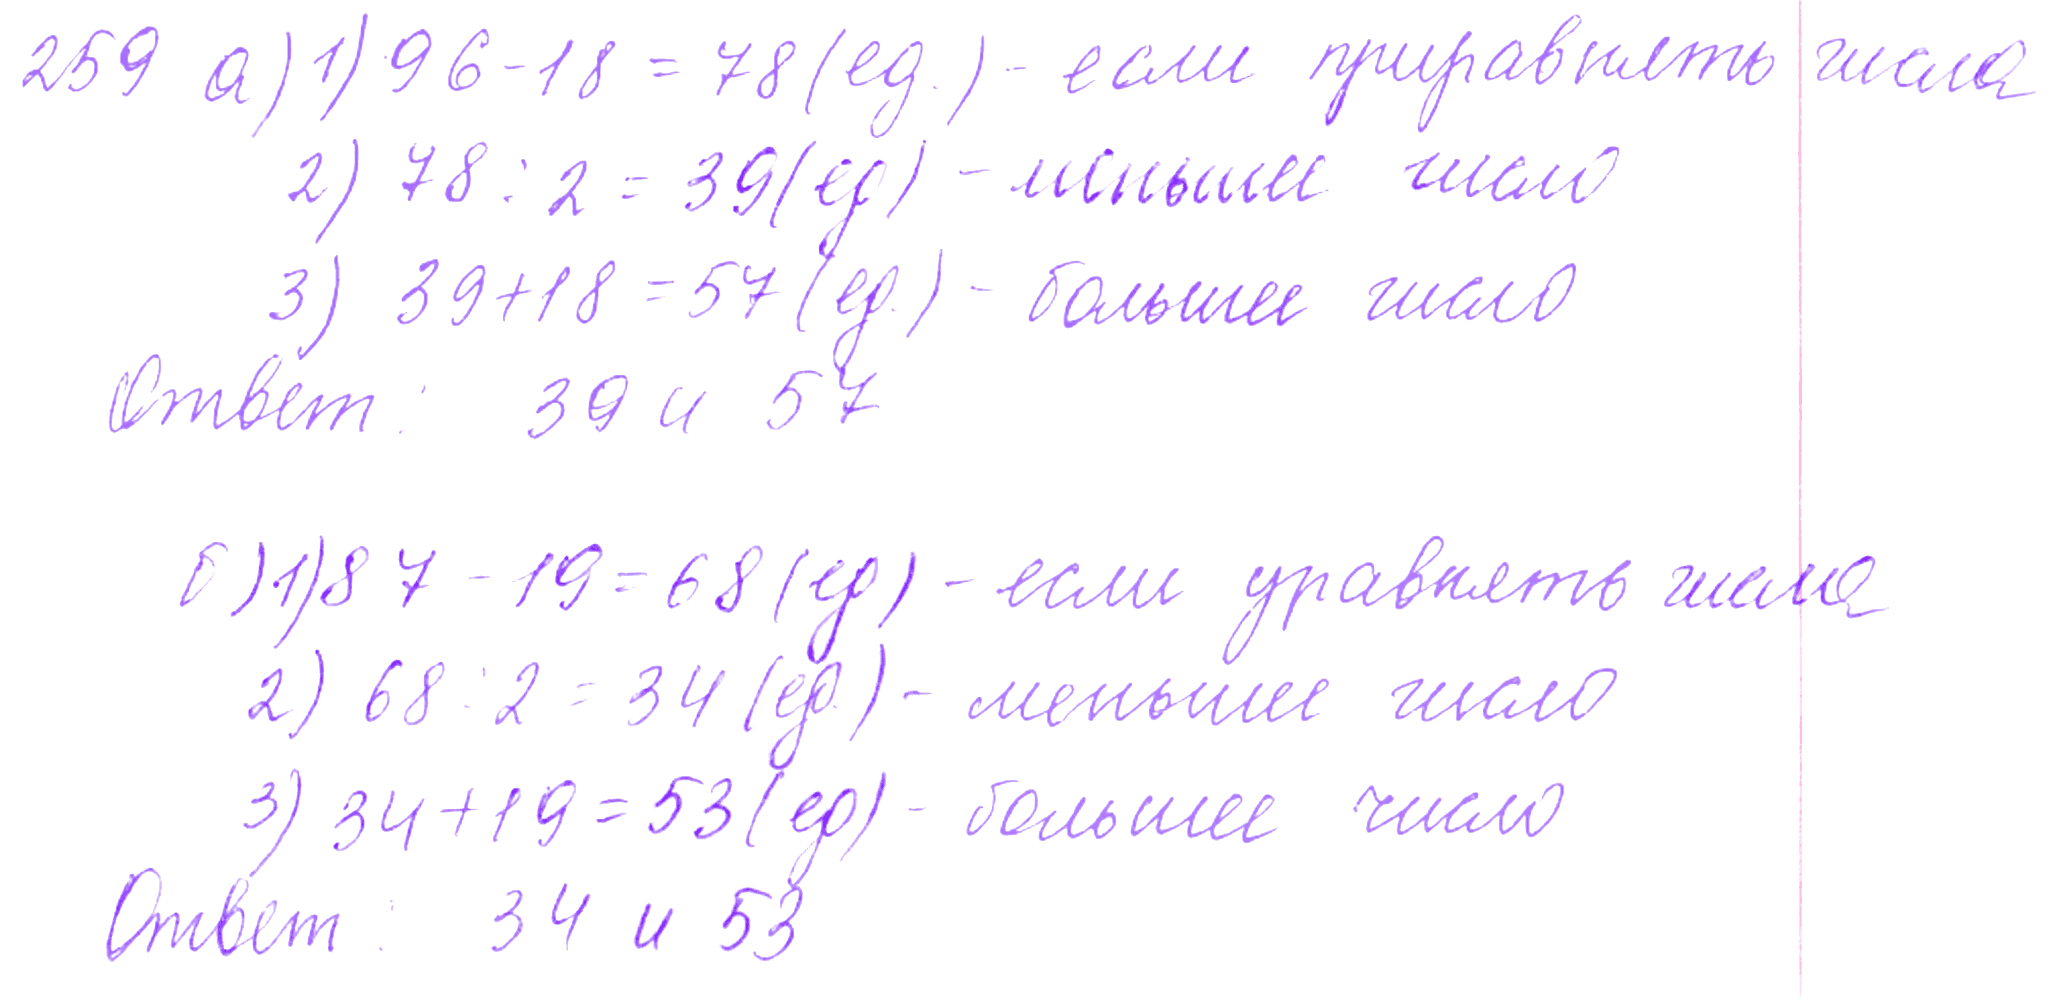 259 а) 1) 96 - 18 = 78 (ед.) - если приравнять числа
2) 78 : 2 = 39 (ед) - меньшее число
3) 39 + 18 = 57 (ед.) - большее число
Ответ: 39 и 57
б) 1) 87 - 19 = 68 (ед) - если уравнять числа
2) 68 : 2 = 34 (ед.) - меньшее число
3) 34 + 19 = 53 (ед) - большее число
Ответ: 34 и 53